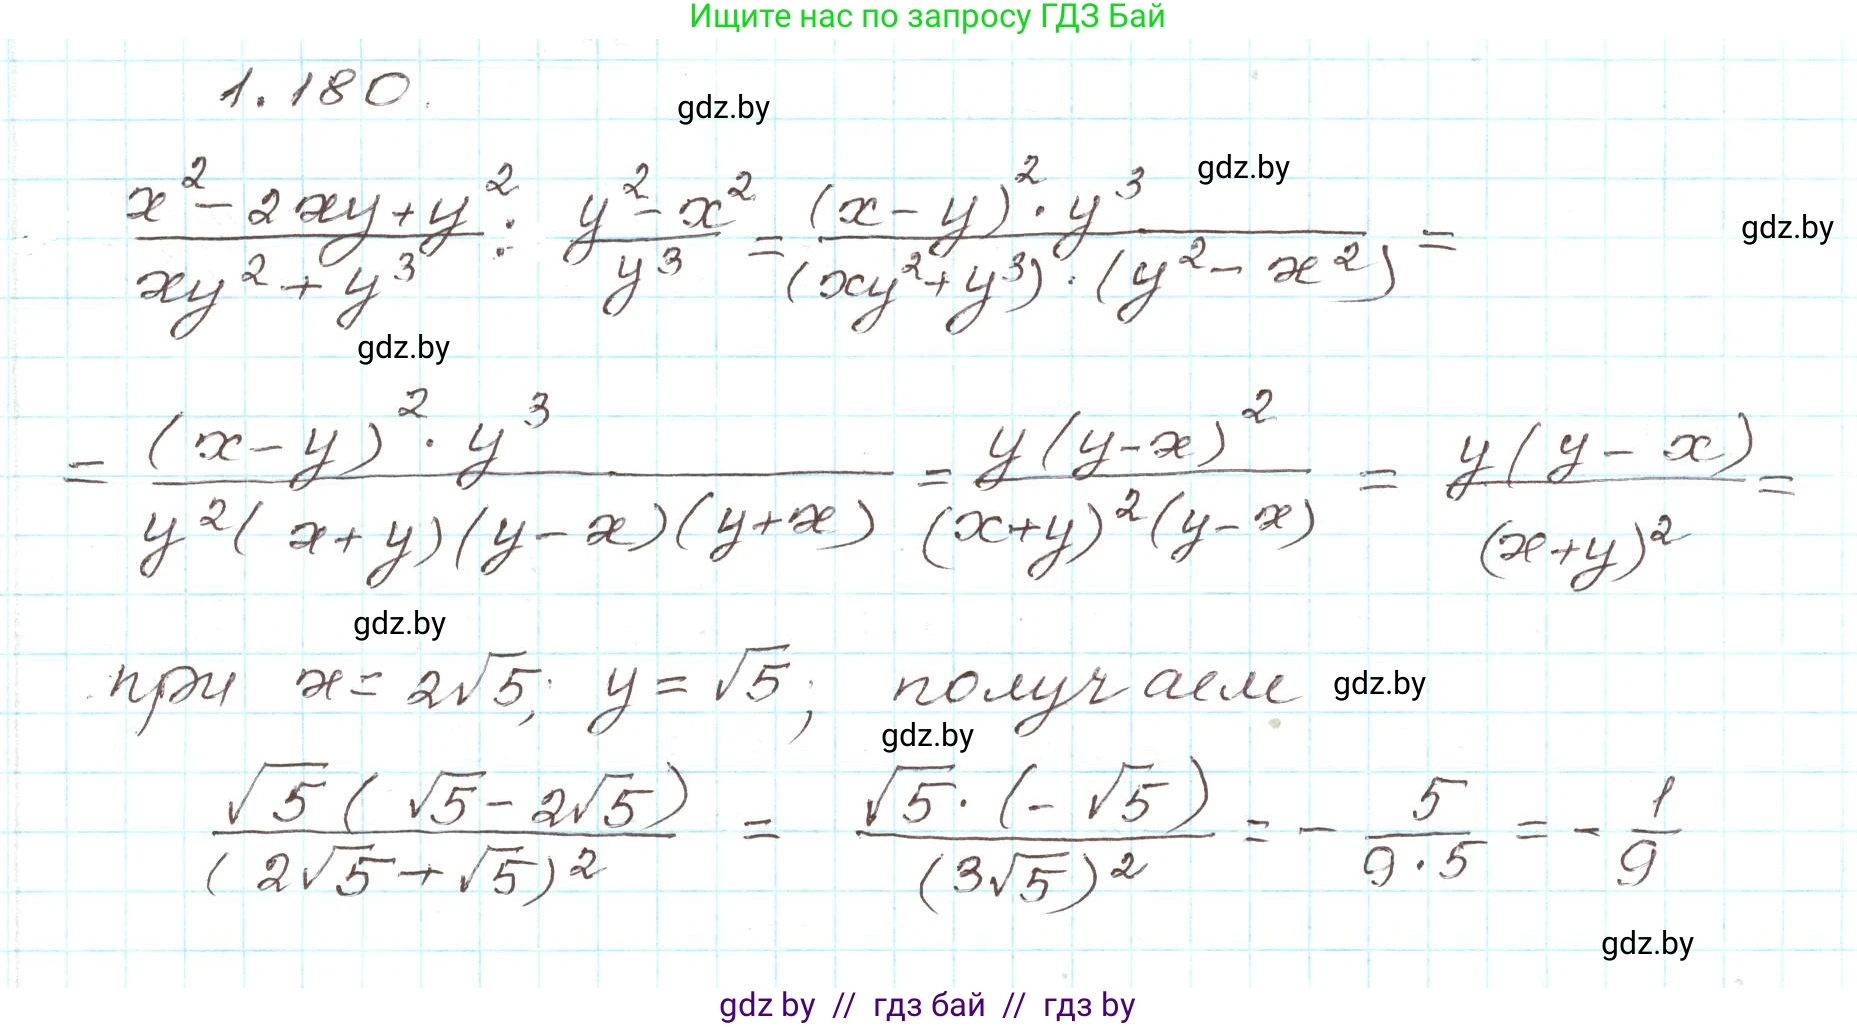 Ищите нас по запросу ГДЗ Бай
1.180.
gdz.by
gdz.by
gdz.by
(x² - 2xy + y²)/(xy² + y³) : (y² - x²)/y³ = ((x - y)² · y³)/((xy² + y³) · (y² - x²)) =
gdz.by
= ((x - y)² · y³)/(y²(x + y)(y - x)(y + x)) = (y(y - x)²)/((x + y)²(y - x)) = (y(y - x))/((x + y)²) =
gdz.by
при x = 2√5; y = √5; получаем
gdz.by
gdz.by
(√5(√5 - 2√5))/((2√5 + √5)²) = (√5 · (-√5))/((3√5)²) = - 5/(9 · 5) = - 1/9
gdz.by
gdz by // гдз бай // гдз by